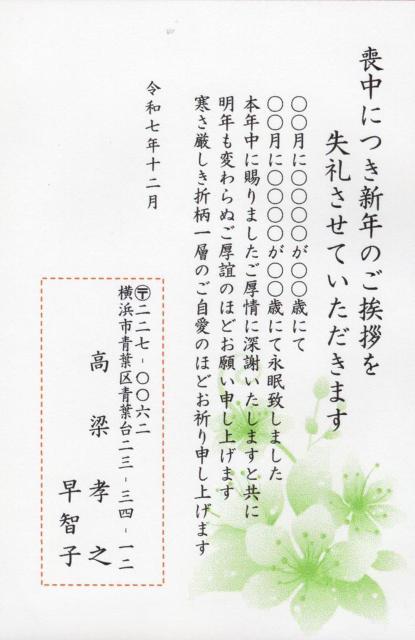 喪中につき新年のご挨拶を
失礼させていただきます
〇〇月に〇〇〇〇が〇〇歳にて
〇〇月に〇〇〇〇が〇〇歳にて永眠致しました
本年中に賜りましたご厚情に深謝いたしますと共に
明年も変わらぬご厚誼のほどお願い申し上げます
寒さ厳しき折柄一層のご自愛のほどお祈り申し上げます
令和七年十二月
〒二二七-〇〇六二
横浜市青葉区青葉台二三-三四-一二
高梁 孝之
早智子